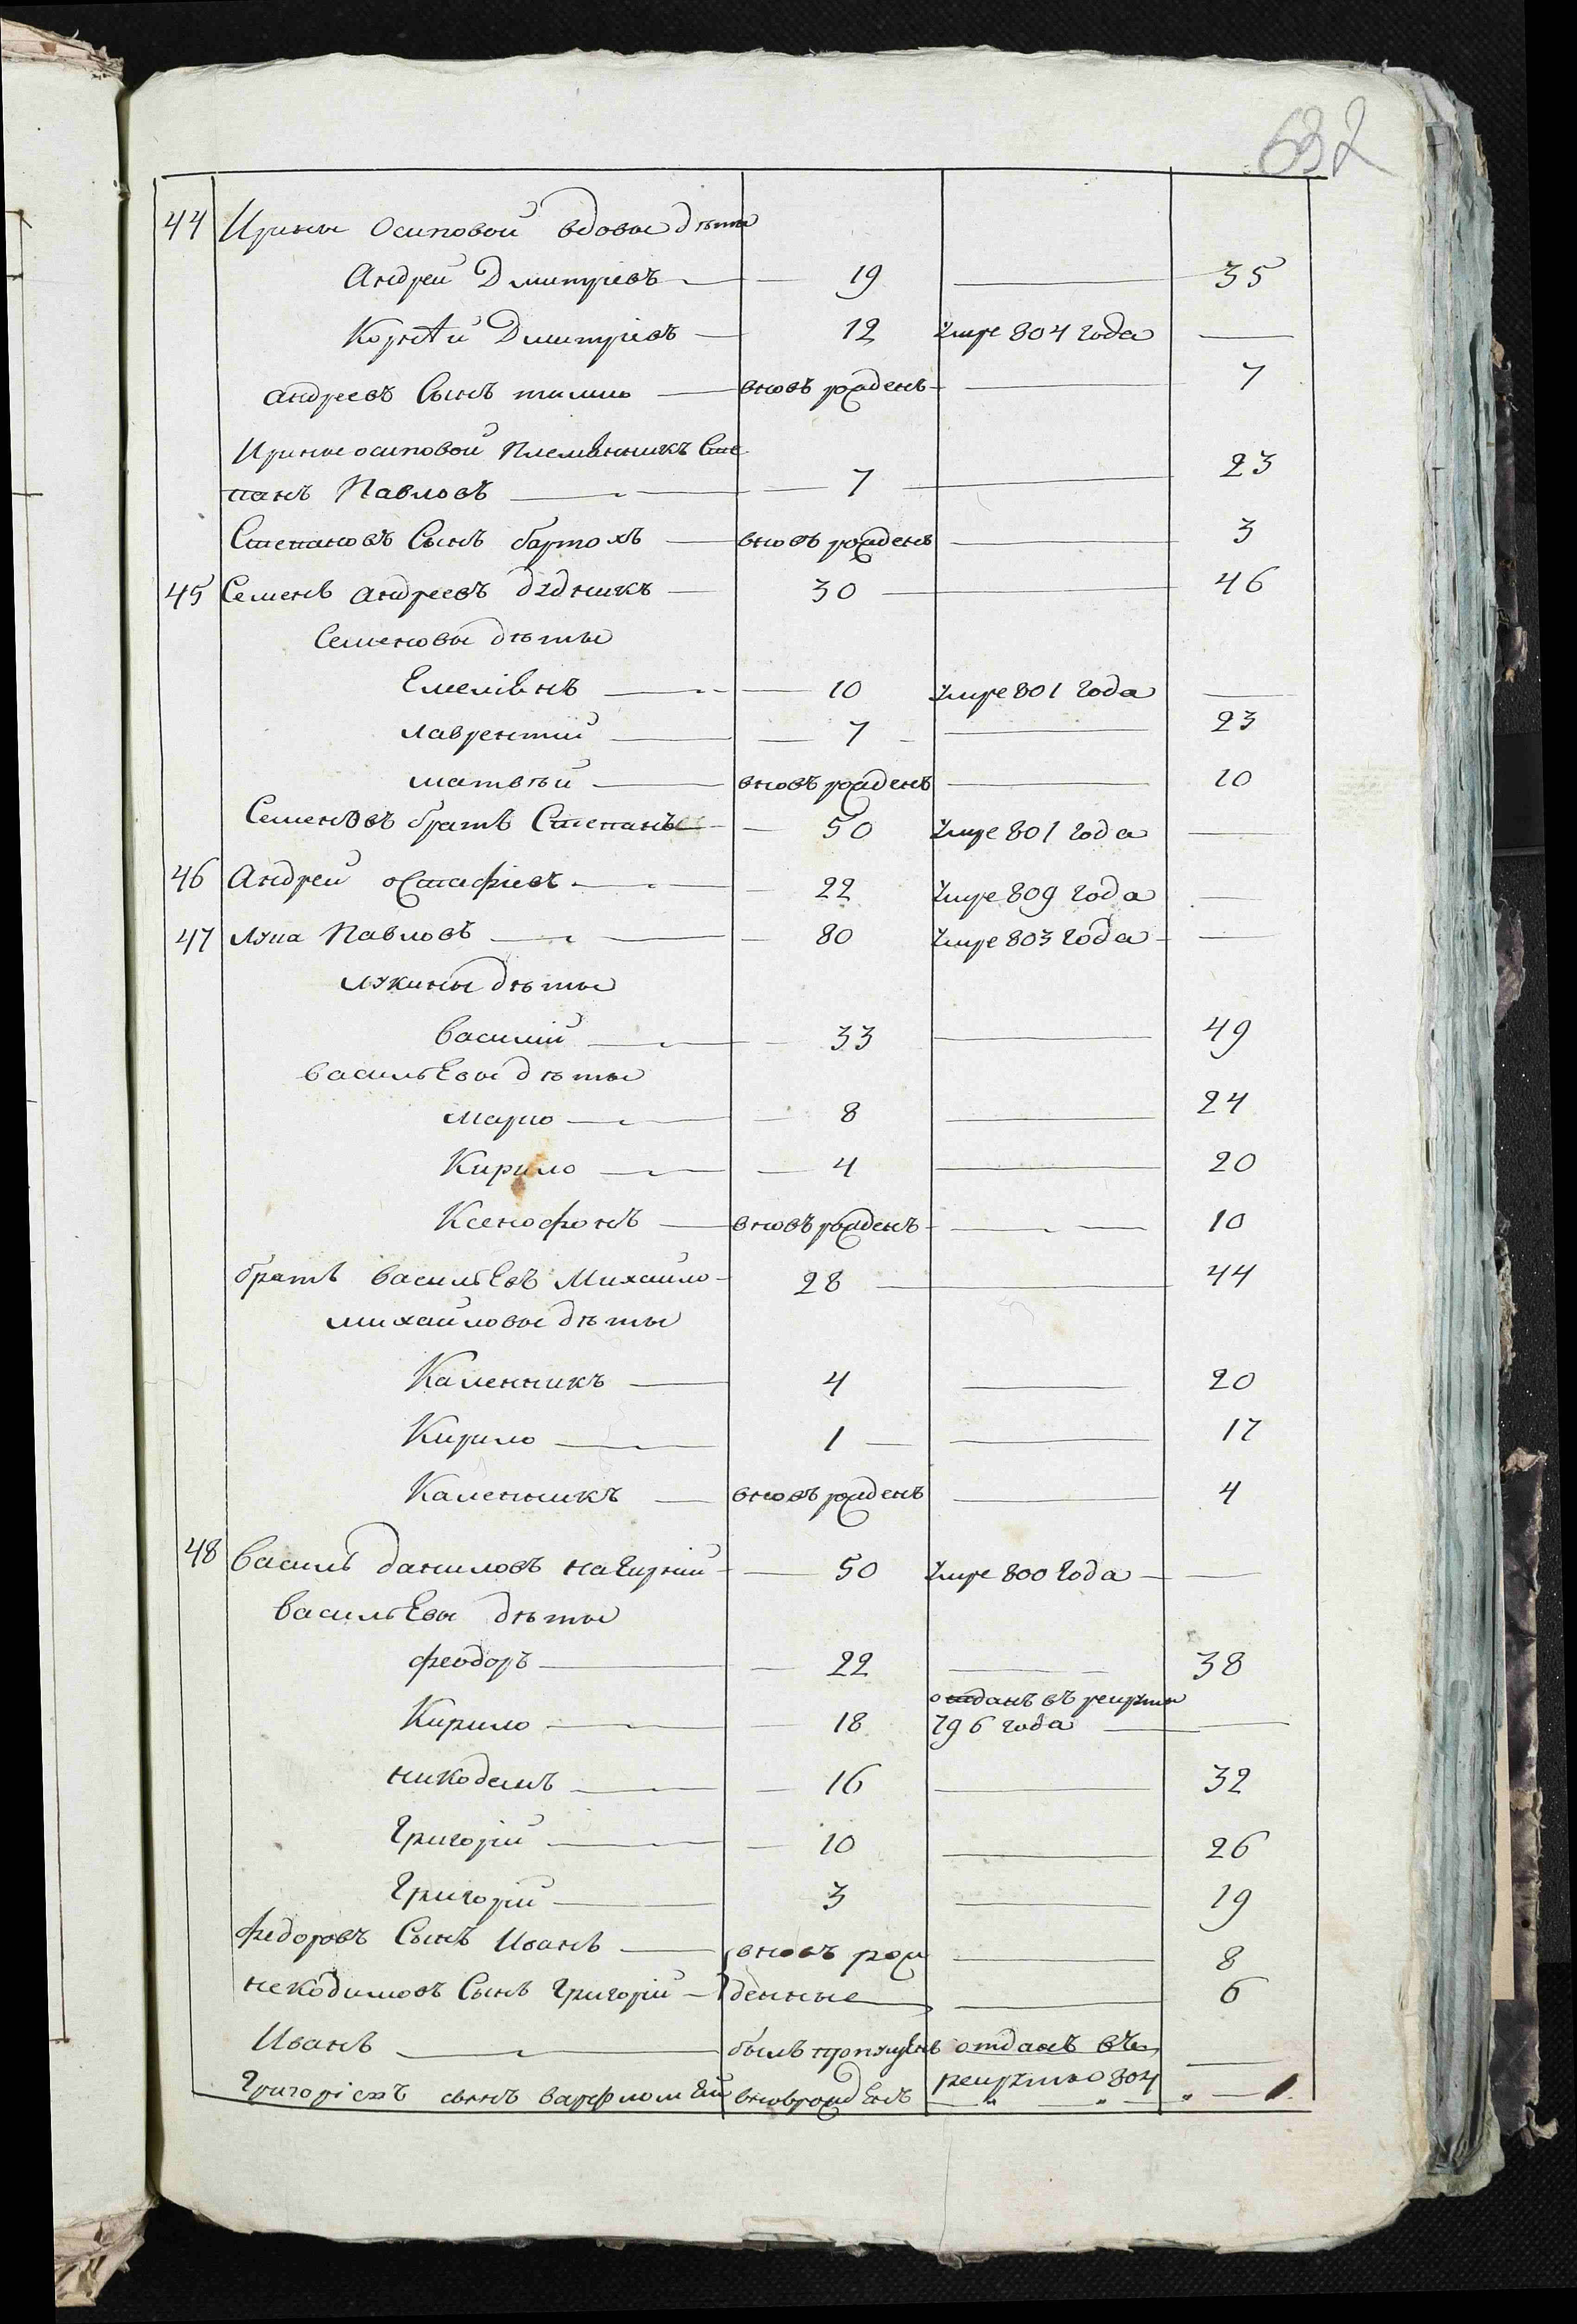 632
44 Ирины Осиповой вдовы дѣти
Андрей Дмитріевъ 19 35
Корнѣй Дмитріевъ 12 умре 804 года
Андреевъ Сынъ 
вновъ рожденъ 7
Ирины осиповой Племянникъ Сте
панъ Павловъ 7 23
Степановъ Сынъ вновъ рожденъ 3
45 Семенъ Андреевъ дядникъ 30 46
Семеновы дѣти
Емеліянъ 10 умре 801 года
лаврентій 7 23
матвѣй вновъ рожденъ 10
Семеновъ братъ Степанъ 50 умре 801 года
46 Андрей остафіевъ 22 умре 809 года
47 лука Павловъ 80 умре 803 года
лукины дѣти
василій 33 49
васильевы дѣти
марко 8 24
Кирило 4 20
Ксенофонъ вновъ рожденъ 10
братъ васильевъ Михаило 28 44
михаиловы дѣти
Каленникъ 4 20
Кирило 1 17
Каленникъ вновъ рожденъ 4
48 василь даниловъ 50 умре 800 года
васильевы дѣти
феодоръ 22 38
отданъ въ рекруты
Кирило 18 796 года
никодемъ 16 32
Григорій 10 26
Григорій 3 19
федоровъ Сынъ Иванъ вновъ рож 8
некодимовъ Сынъ Григорій денные 6
Иванъ былъ пропущенъ отданъ въ
рекруты 804
Григоріевъ сынъ варфломѣй вновърожденъ 1